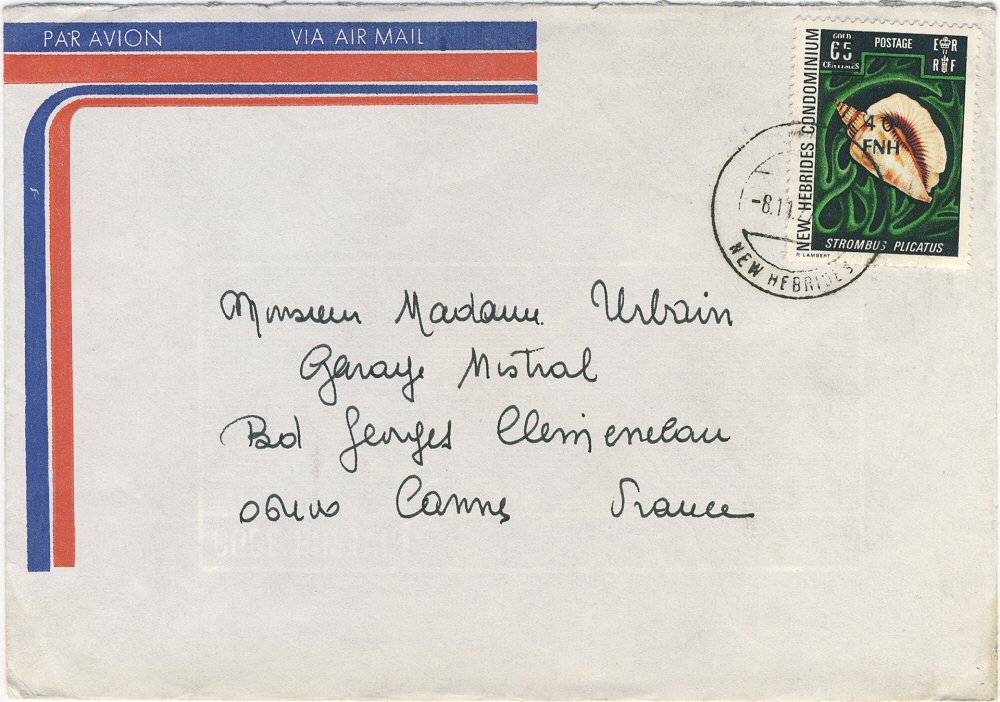 PAR AVION VIA AIR MAIL
GOLD 65 CENTIMES POSTAGE E R
R F
NEW HEBRIDES CONDOMINIUM
40
FNH
STROMBUS PLICATUS
R. LAMBERT
-8.11.
NEW HEBRIDES
Monsieur Madame Urbain
Garage Mistral
Bd Georges Clemenceau
Cannes France